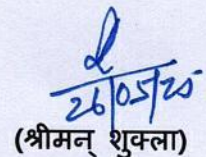 26/05/25
(श्रीमन् शुक्ला)